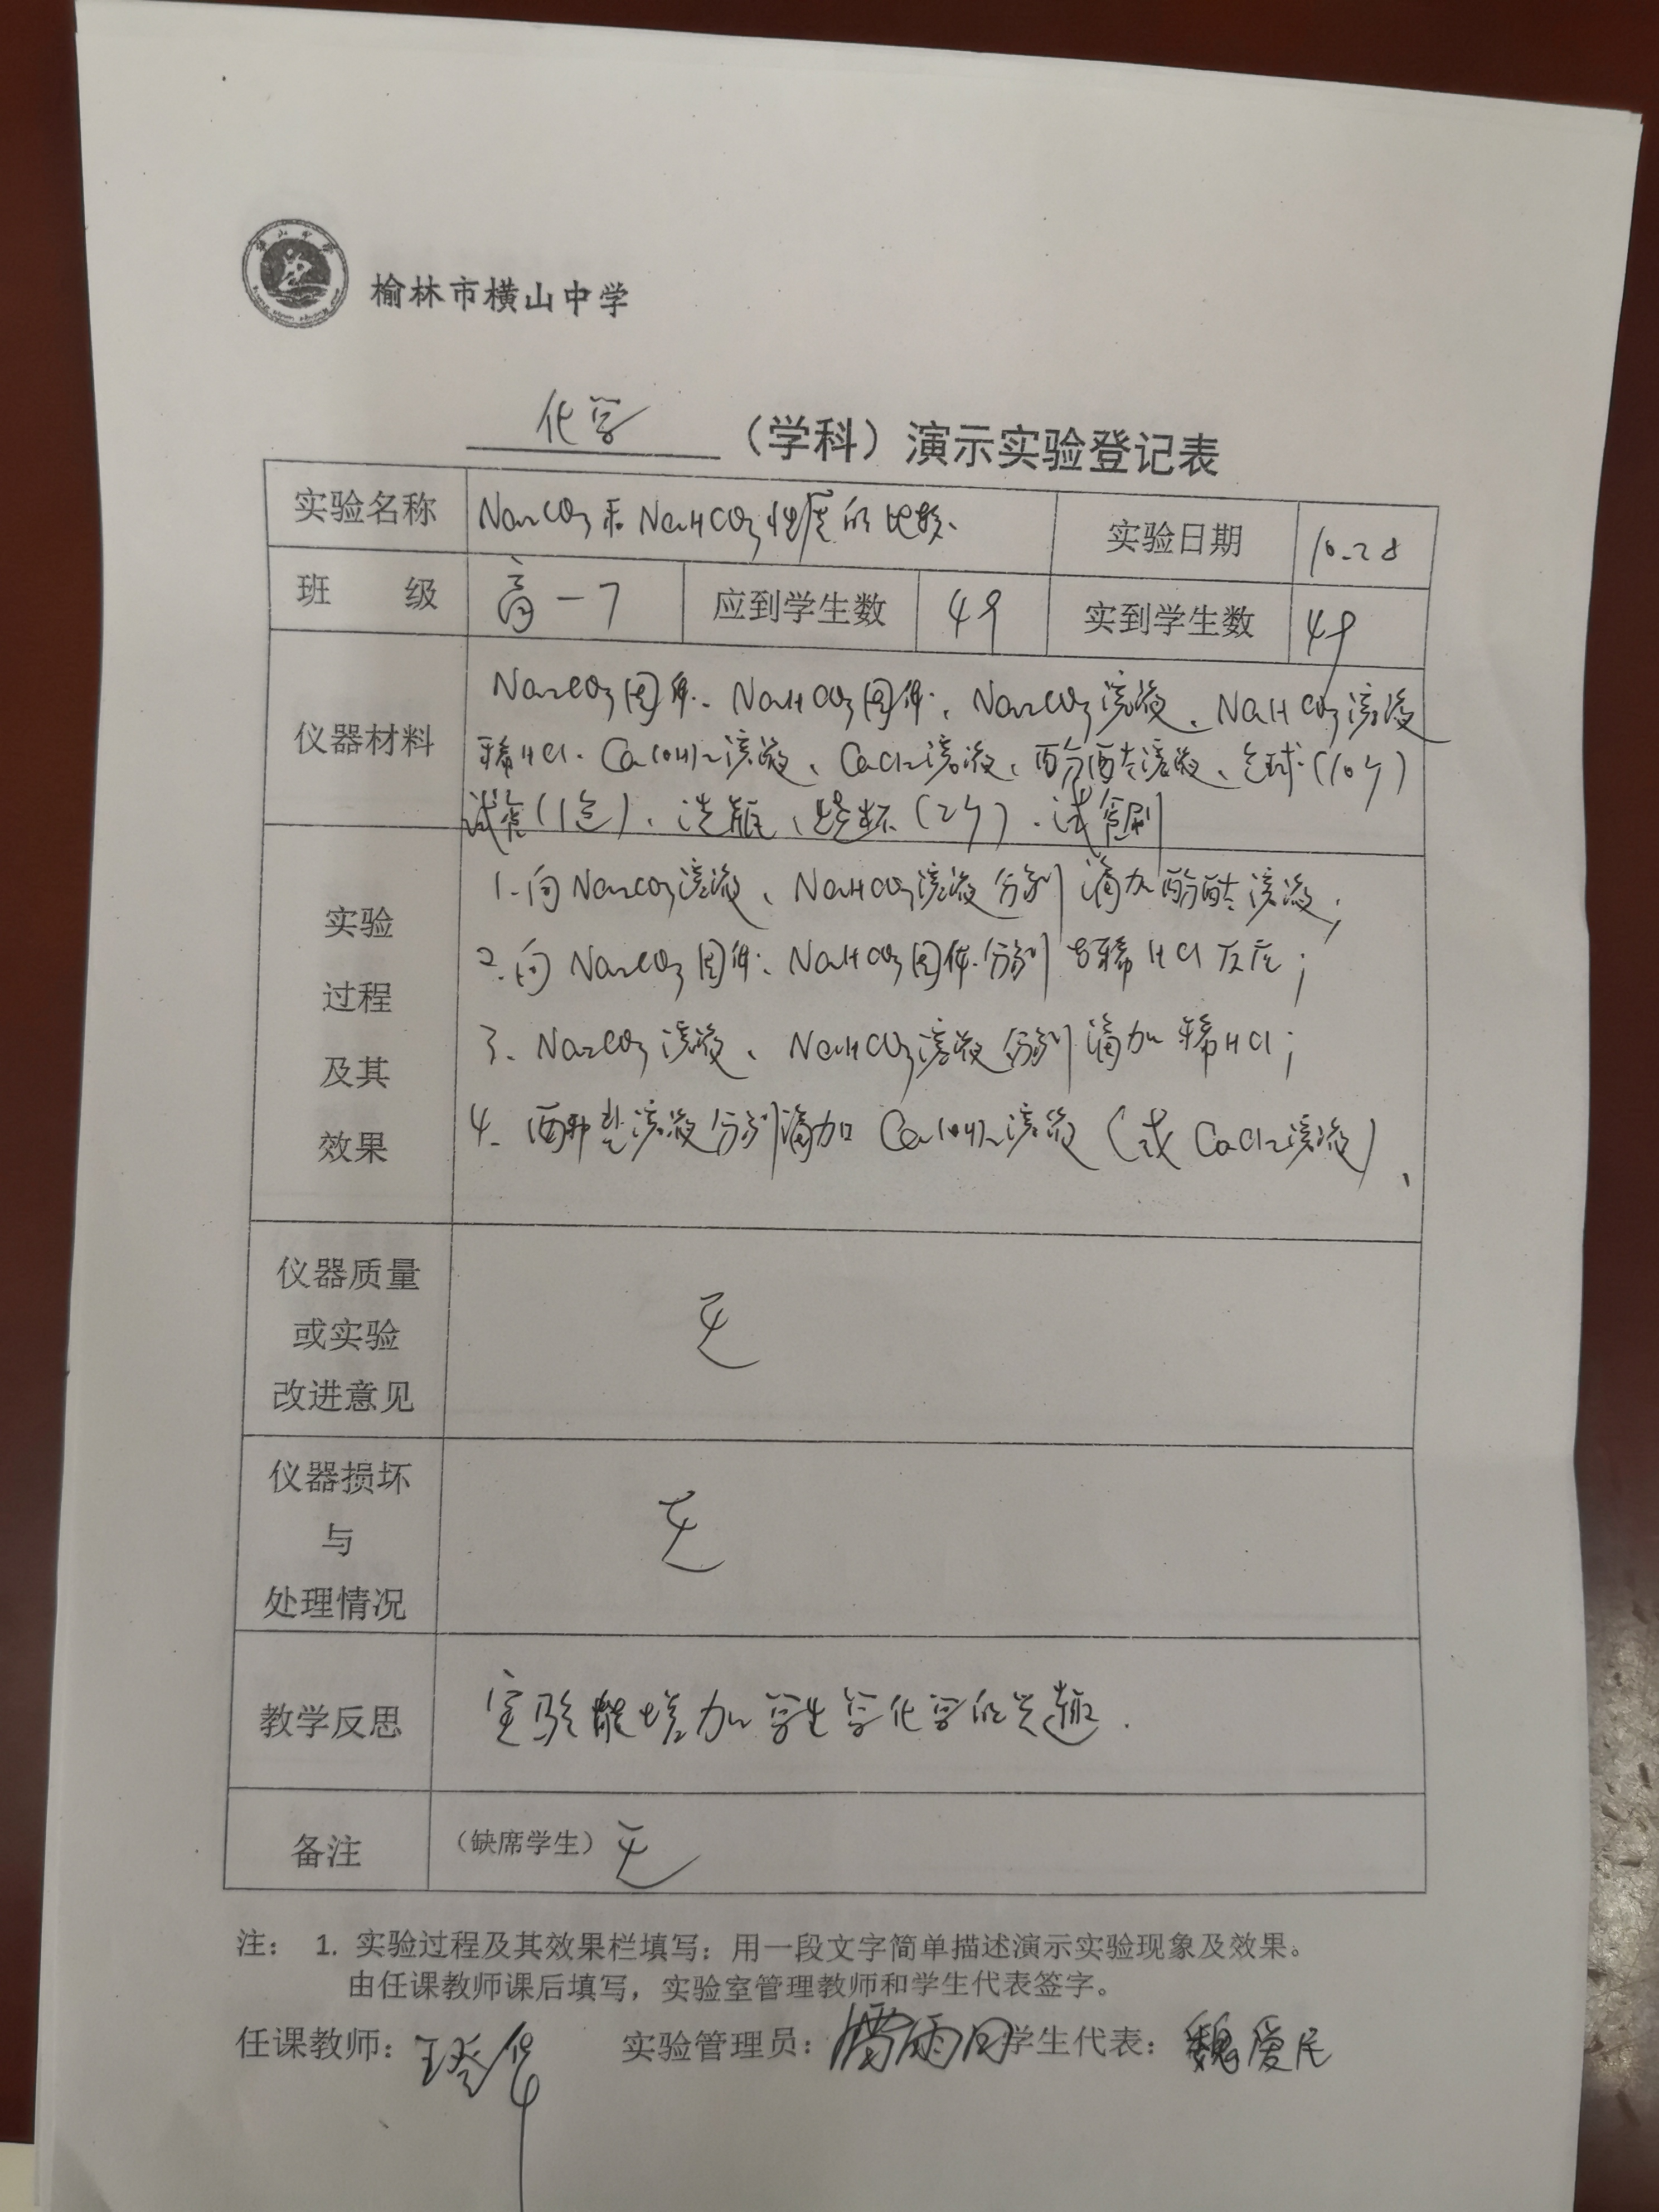 榆林市横山中学
化学（学科）演示实验登记表
实验名称 Na₂CO₃和NaHCO₃性质的比较. 实验日期 10.28
班 级 高一7 应到学生数 49 实到学生数 49
仪器材料
Na₂CO₃固体、NaHCO₃固体、Na₂CO₃溶液、NaHCO₃溶液
稀HCl、Ca(OH)₂溶液、CaCl₂溶液、酚酞溶液、气球(10个)
试管(1包)、洗瓶、烧杯(2个)、试管刷
实验
过程
及其
效果
1.向Na₂CO₃溶液、NaHCO₃溶液分别滴加酚酞溶液;
2.向Na₂CO₃固体、NaHCO₃固体分别与稀HCl反应;
3、Na₂CO₃溶液、NaHCO₃溶液分别滴加稀HCl;
4、两种盐溶液分别滴加Ca(OH)₂溶液(或CaCl₂溶液)、
仪器质量
或实验
改进意见
无
仪器损坏
与
处理情况
无
教学反思 实验能增加学生学化学的兴趣.
备注 （缺席学生）无
注： 1. 实验过程及其效果栏填写：用一段文字简单描述演示实验现象及效果。
由任课教师课后填写，实验室管理教师和学生代表签字。
任课教师： 实验管理员： 学生代表：魏爱民